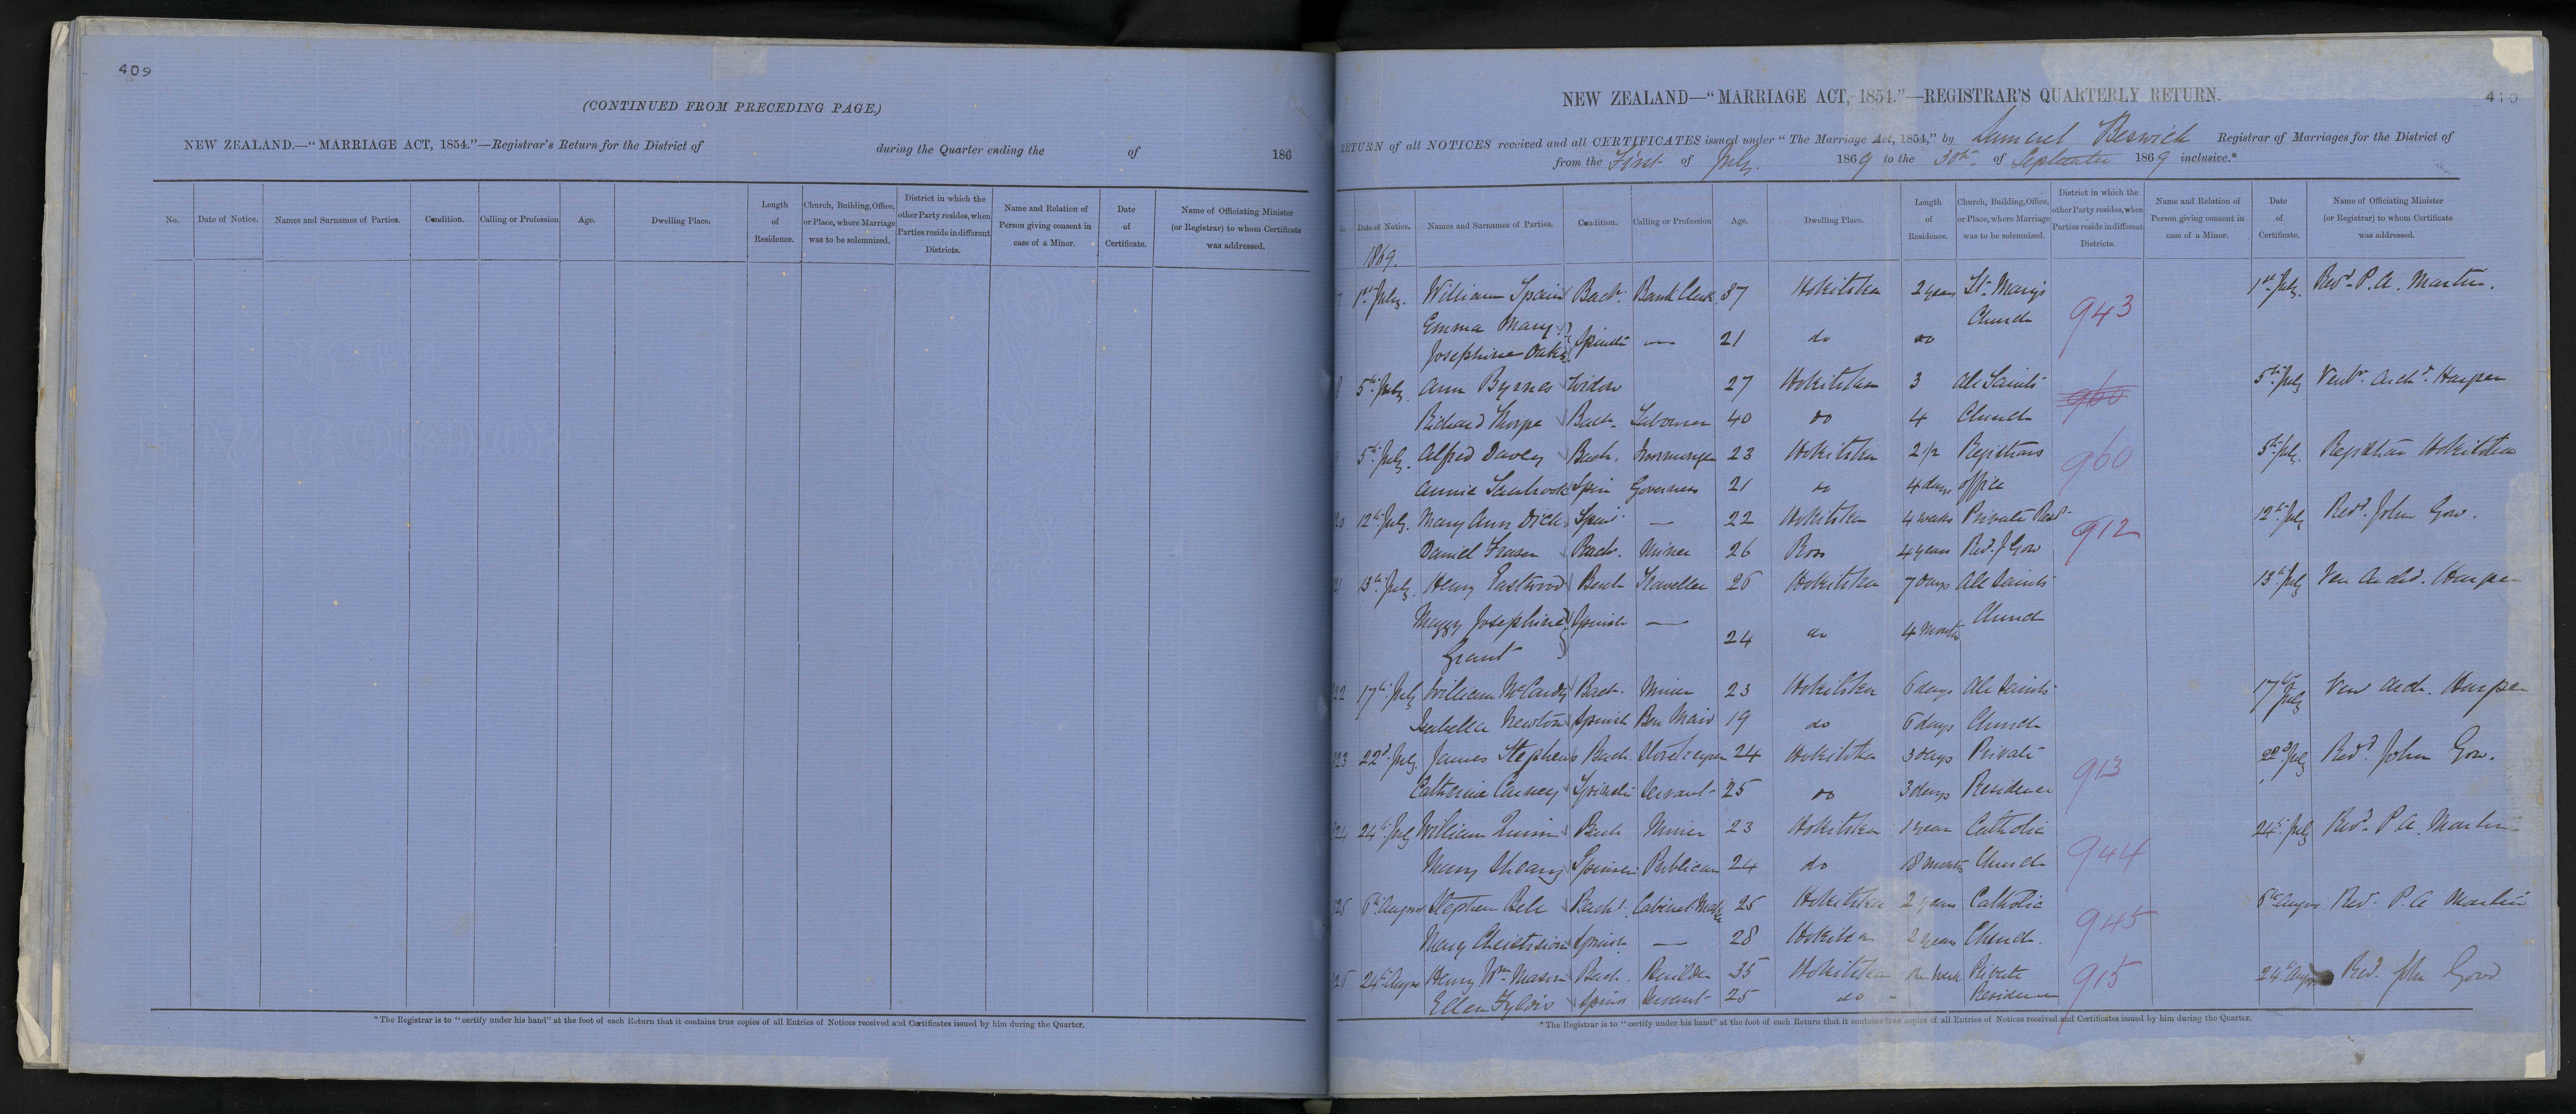 409
(CONTINUED FROM PRECEDING PAGE.)
NEW ZEALAND.—"MARRIAGE ACT, 1854."—Registrar's Return for the District of during the Quarter ending the of 186
No. Date of Notice. Names and Surnames of Parties. Condition. Calling or Profession Age. Dwelling Place. Length of Residence. Church, Building, Office, or Place, where Marriage was to be solemnized. District in which the other Party resides, when Parties reside in different Districts. Name and Relation of Person giving consent in case of a Minor. Date of Certificate. Name of Officiating Minister (or Registrar) to whom Certificate was addressed.
*The Registrar is to "certify under his hand" at the foot of each Return that it contains true copies of all Entries of Notices received and Certificates issued by him during the Quarter.
410
NEW ZEALAND—"MARRIAGE ACT, 1854."—REGISTRAR'S QUARTERLY RETURN.
RETURN of all NOTICES received and all CERTIFICATES issued under "The Marriage Act, 1854," by Samuel Beswick Registrar of Marriages for the District of
from the First of July. 1869 to the 30th of September 1869 inclusive.*
Date of Notice. Names and Surnames of Parties. Condition. Calling or Profession. Age. Dwelling Place. Length of Residence. Church, Building, Office, or Place, where Marriage was to be solemnized. District in which the other Party resides, when Parties reside in different Districts. Name and Relation of Person giving consent in case of a Minor. Date of Certificate. Name of Officiating Minister (or Registrar) to whom Certificate was addressed.
1869.
7 1st July. William Spain Bach. Bank Clerk 37 Hokitika 2 years St. Mary's 943 1st July. Revd. P. A. Martin.
Emma Mary Church
Josephine Oakes Spinster — 21 do do
8 5th July. Ann Byrnes Widow 27 Hokitika 3 All Saints 960 5th July Venbl. Archd. Harper
Richard Thorpe Bach. Labourer 40 do 4 Church
5th July. Alfred Davey Bach. Ironmonger 23 Hokitika 2 1/2 Registrars 960 5th July. Registrar Hokitika
Annie Spin Governess 21 do 4 days office
20 12th July. Mary Ann Dick Spins. — 22 Hokitika 4 weeks Private Resd. 912 12th July Revd. John Gow.
Daniel Fraser Bach. Miner 26 Ross 4 years Rev. J Gow
21 13th July. Henry Eastwood Bach Traveller 26 Hokitika 7 days All Saints 13th July Ven Archd. Harper
Maggy Josephine Spinster — Church
Grant 24 do 4 months
22 17th July William McCardy Bach. Miner 23 Hokitika 6 days All Saints 17th July Ven Arch. Harper
Isabella Newton Spinster Bar Maid 19 do 6 days Church
323 22d July. James Stephens Bach. Storekeeper 24 Hokitika 3 days Private 913 22d July Revd. John Gow.
Catherine Carney Spinster Servant 25 do 3 days Residence
324 24th July William Quinn Bach Miner 23 Hokitika 1 year Catholic 944 24th July Revd. P A Martin
Mary Spinster Publican 24 do 18 months Church
325 6th August Stephen Bell Bachl. Cabinet Maker 25 Hokitika 2 years Catholic 945 6th August Rev. P. A Martin
Mary Christison Spinster — 28 Hokitika 2 years Church.
326 24th August Henry Wm Mason Bach. Builder 35 Hokitika one week Private 915 24th August Rev. John Gow
Ellen Spins Servant 25 do Residence
*The Registrar is to "certify under his hand" at the foot of each Return that it contains true copies of all Entries of Notices received and Certificates issued by him during the Quarter.